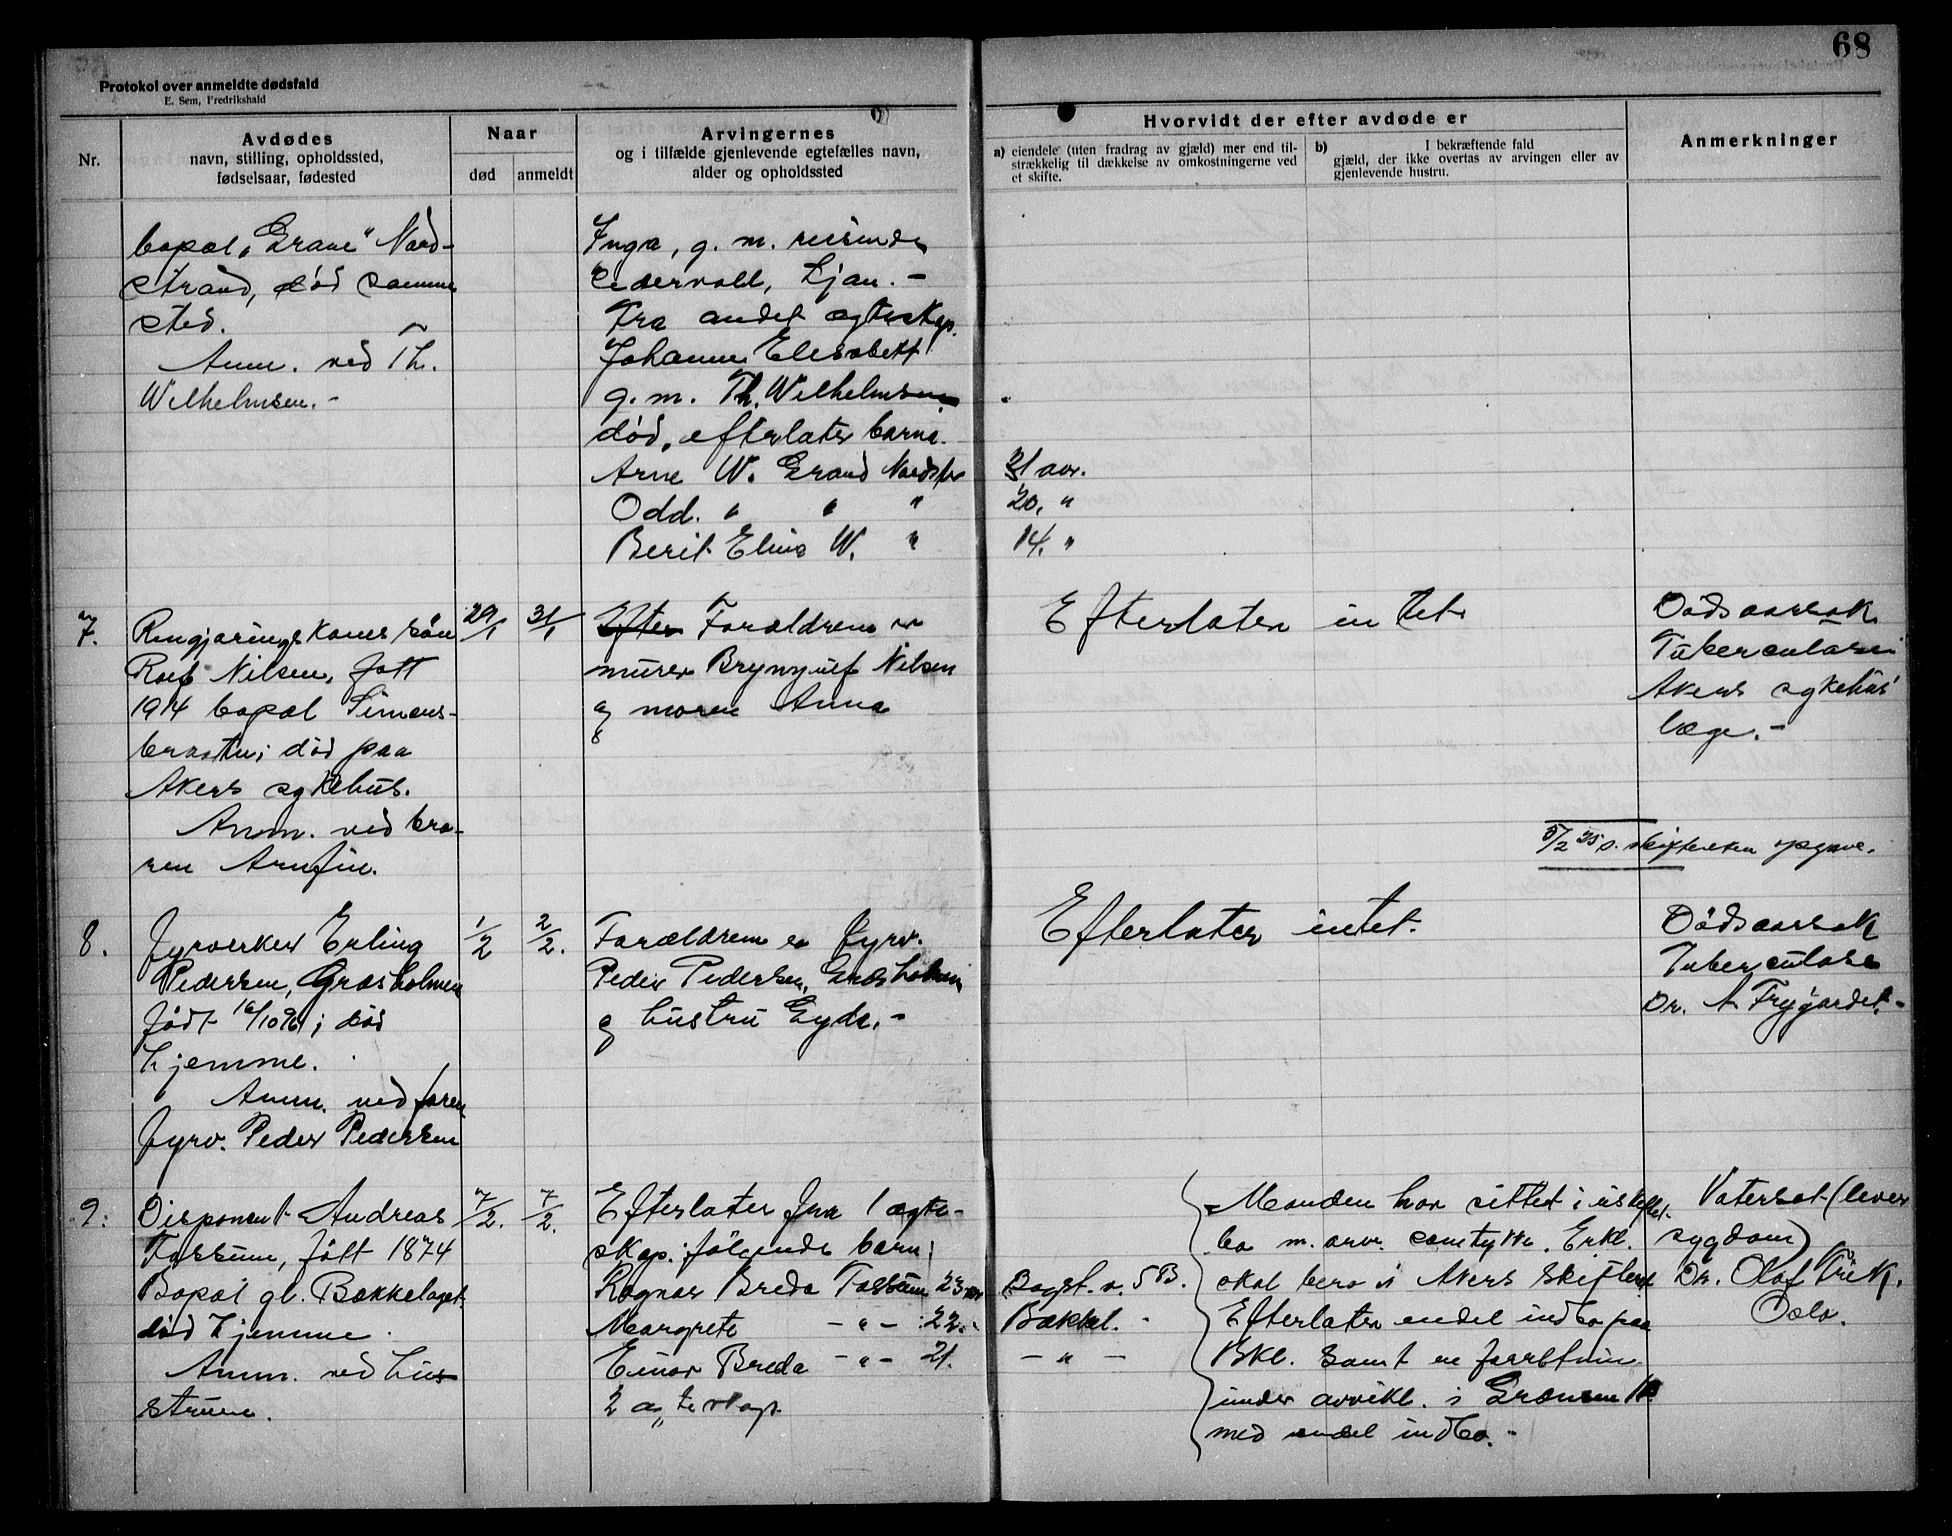 68
Protokol over anmeldte dødsfald
E. Sem, Fredrikshald
Nr.
Avdødes
navn, stilling, opholdssted,
fødselsaar, fødested
Naar
død
anmeldt
Arvingernes
og i tilfælde gjenlevende egtefælles navn,
alder og opholdssted
Hvorvidt der efter avdøde er
a) eiendele (uten fradrag av gjæld) mer end til-
strækkelig til dækkelse av omkostningerne ved
et skifte.
b) I bekræftende fald
gjæld, der ikke overtas av arvingen eller av
gjenlevende hustru.
Anmerkninger
bopæl "Grane" Nord-
strand, død samme
sted.
Anm. ved Th.
Wilhelmsen.-
Inga, g. m. reisende
Cedervall, Ljan.-
Fra andet ægteskap.
Johanne Elisabeth
g. m. Th. Wilhelmsen
død, efterlater barna
Arne W. Grand Nordstr 21 aar.
Odd. " " " 20. "
Berit Elina W. " 14. "
7.
Rengjøringskones søn
Rolf Nilsen, født
1914 bopæl Simens-
braaten; død paa
Akers sykehus.
Anm. ved bro-
ren Arnfin.
29/1
31/1
Efter Forældrene er
murer Brynjulf Nilsen
og moren Anna
Efterlater intet
Dødsaarsak
Tuberculose
Akers sykehus
læge.-
5/2 25 s. skifteretten opgave.
8.
Fyrverker Erling
Pedersen, Græsholmen
født 16/10 96; død
hjemme.
Anm. ved faren
fyrv. Peder Pedersen
1/2
2/2.
Forældrene er fyrv.
Peder Pedersen, Græsholmen
og hustru Gyda.-
Efterlater intet.
Dødsaarsak
Tuberculose
Dr. A Frygardet.-
9.
Disponent Andreas
Fossum, født 1874
Bopæl gl. Bækkelaget
død hjemme.
Anm. ved hu-
struen.
7/2.
7/2.
Efterlater fra 1 ægte-
skap følgende barn:
Ragnar Breda Fossum 23 aar Bogst. v. 5B.
Margrete -"- 22. Bækkel.
Einar Breda -"- 21. -"-
2 ægteskap
Manden har sittet i uskiftet
bo m. arv. samtykke. Erkl.
skal bero i Akers skifteret
Efterlater endel indbo paa
Bkl. samt en forretning
under avvikl. i Grænsen
med endel indbo.-
Vatersot (lever
sygdom)
Dr. Olaf Frick.
Oslo.